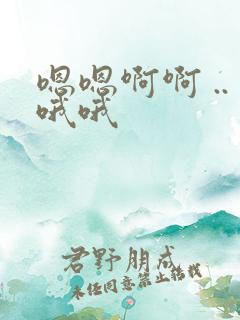 嗯嗯啊啊..
哦哦
君野朋成
未经同意禁止转载